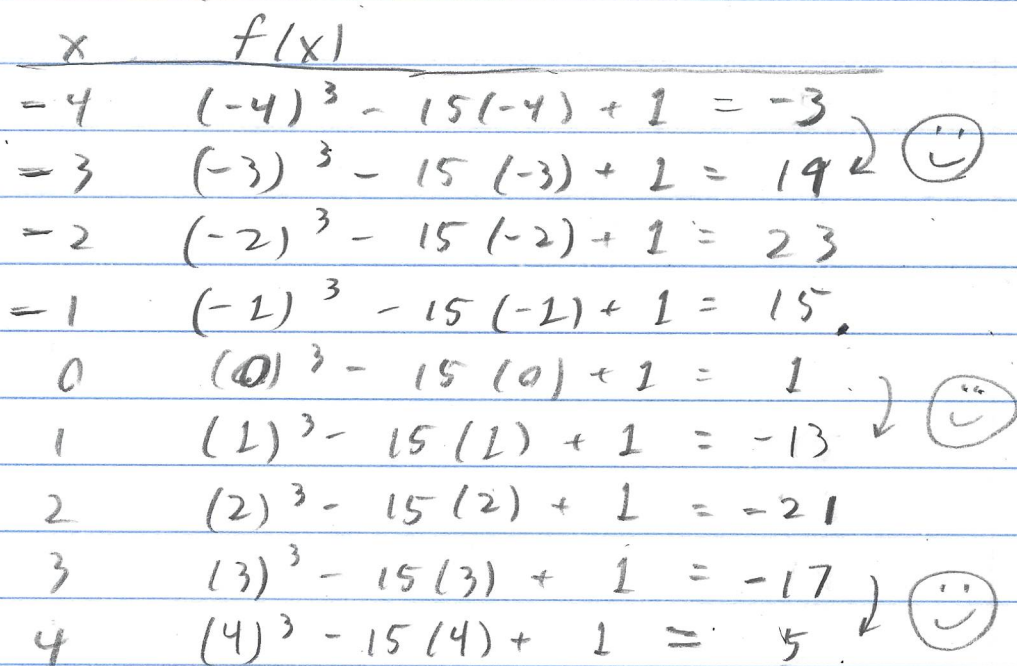 x f(x)
-4 (-4)³ - 15(-4) + 1 = -3
-3 (-3)³ - 15(-3) + 1 = 19
-2 (-2)³ - 15(-2) + 1 = 23
-1 (-1)³ - 15(-1) + 1 = 15.
0 (0)³ - 15(0) + 1 = 1
1 (1)³ - 15(1) + 1 = -13
2 (2)³ - 15(2) + 1 = -21
3 (3)³ - 15(3) + 1 = -17
4 (4)³ - 15(4) + 1 = 5